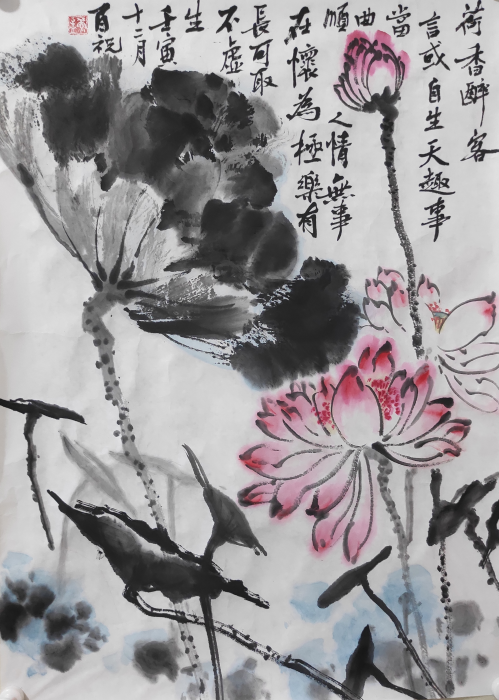 荷香醉客
言或自生天趣事
當
曲
順人情無事
在懷為極樂有
長可取
不虛
生
壬寅
十二月
百祝